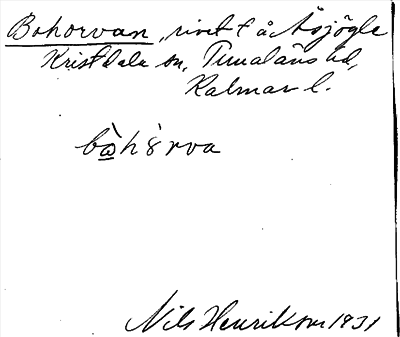 Bohorvan, rivet å
Kristdala sn, Tunaläns hd,
Kalmar l.
bòhòrva
Nils Henrikson 1931